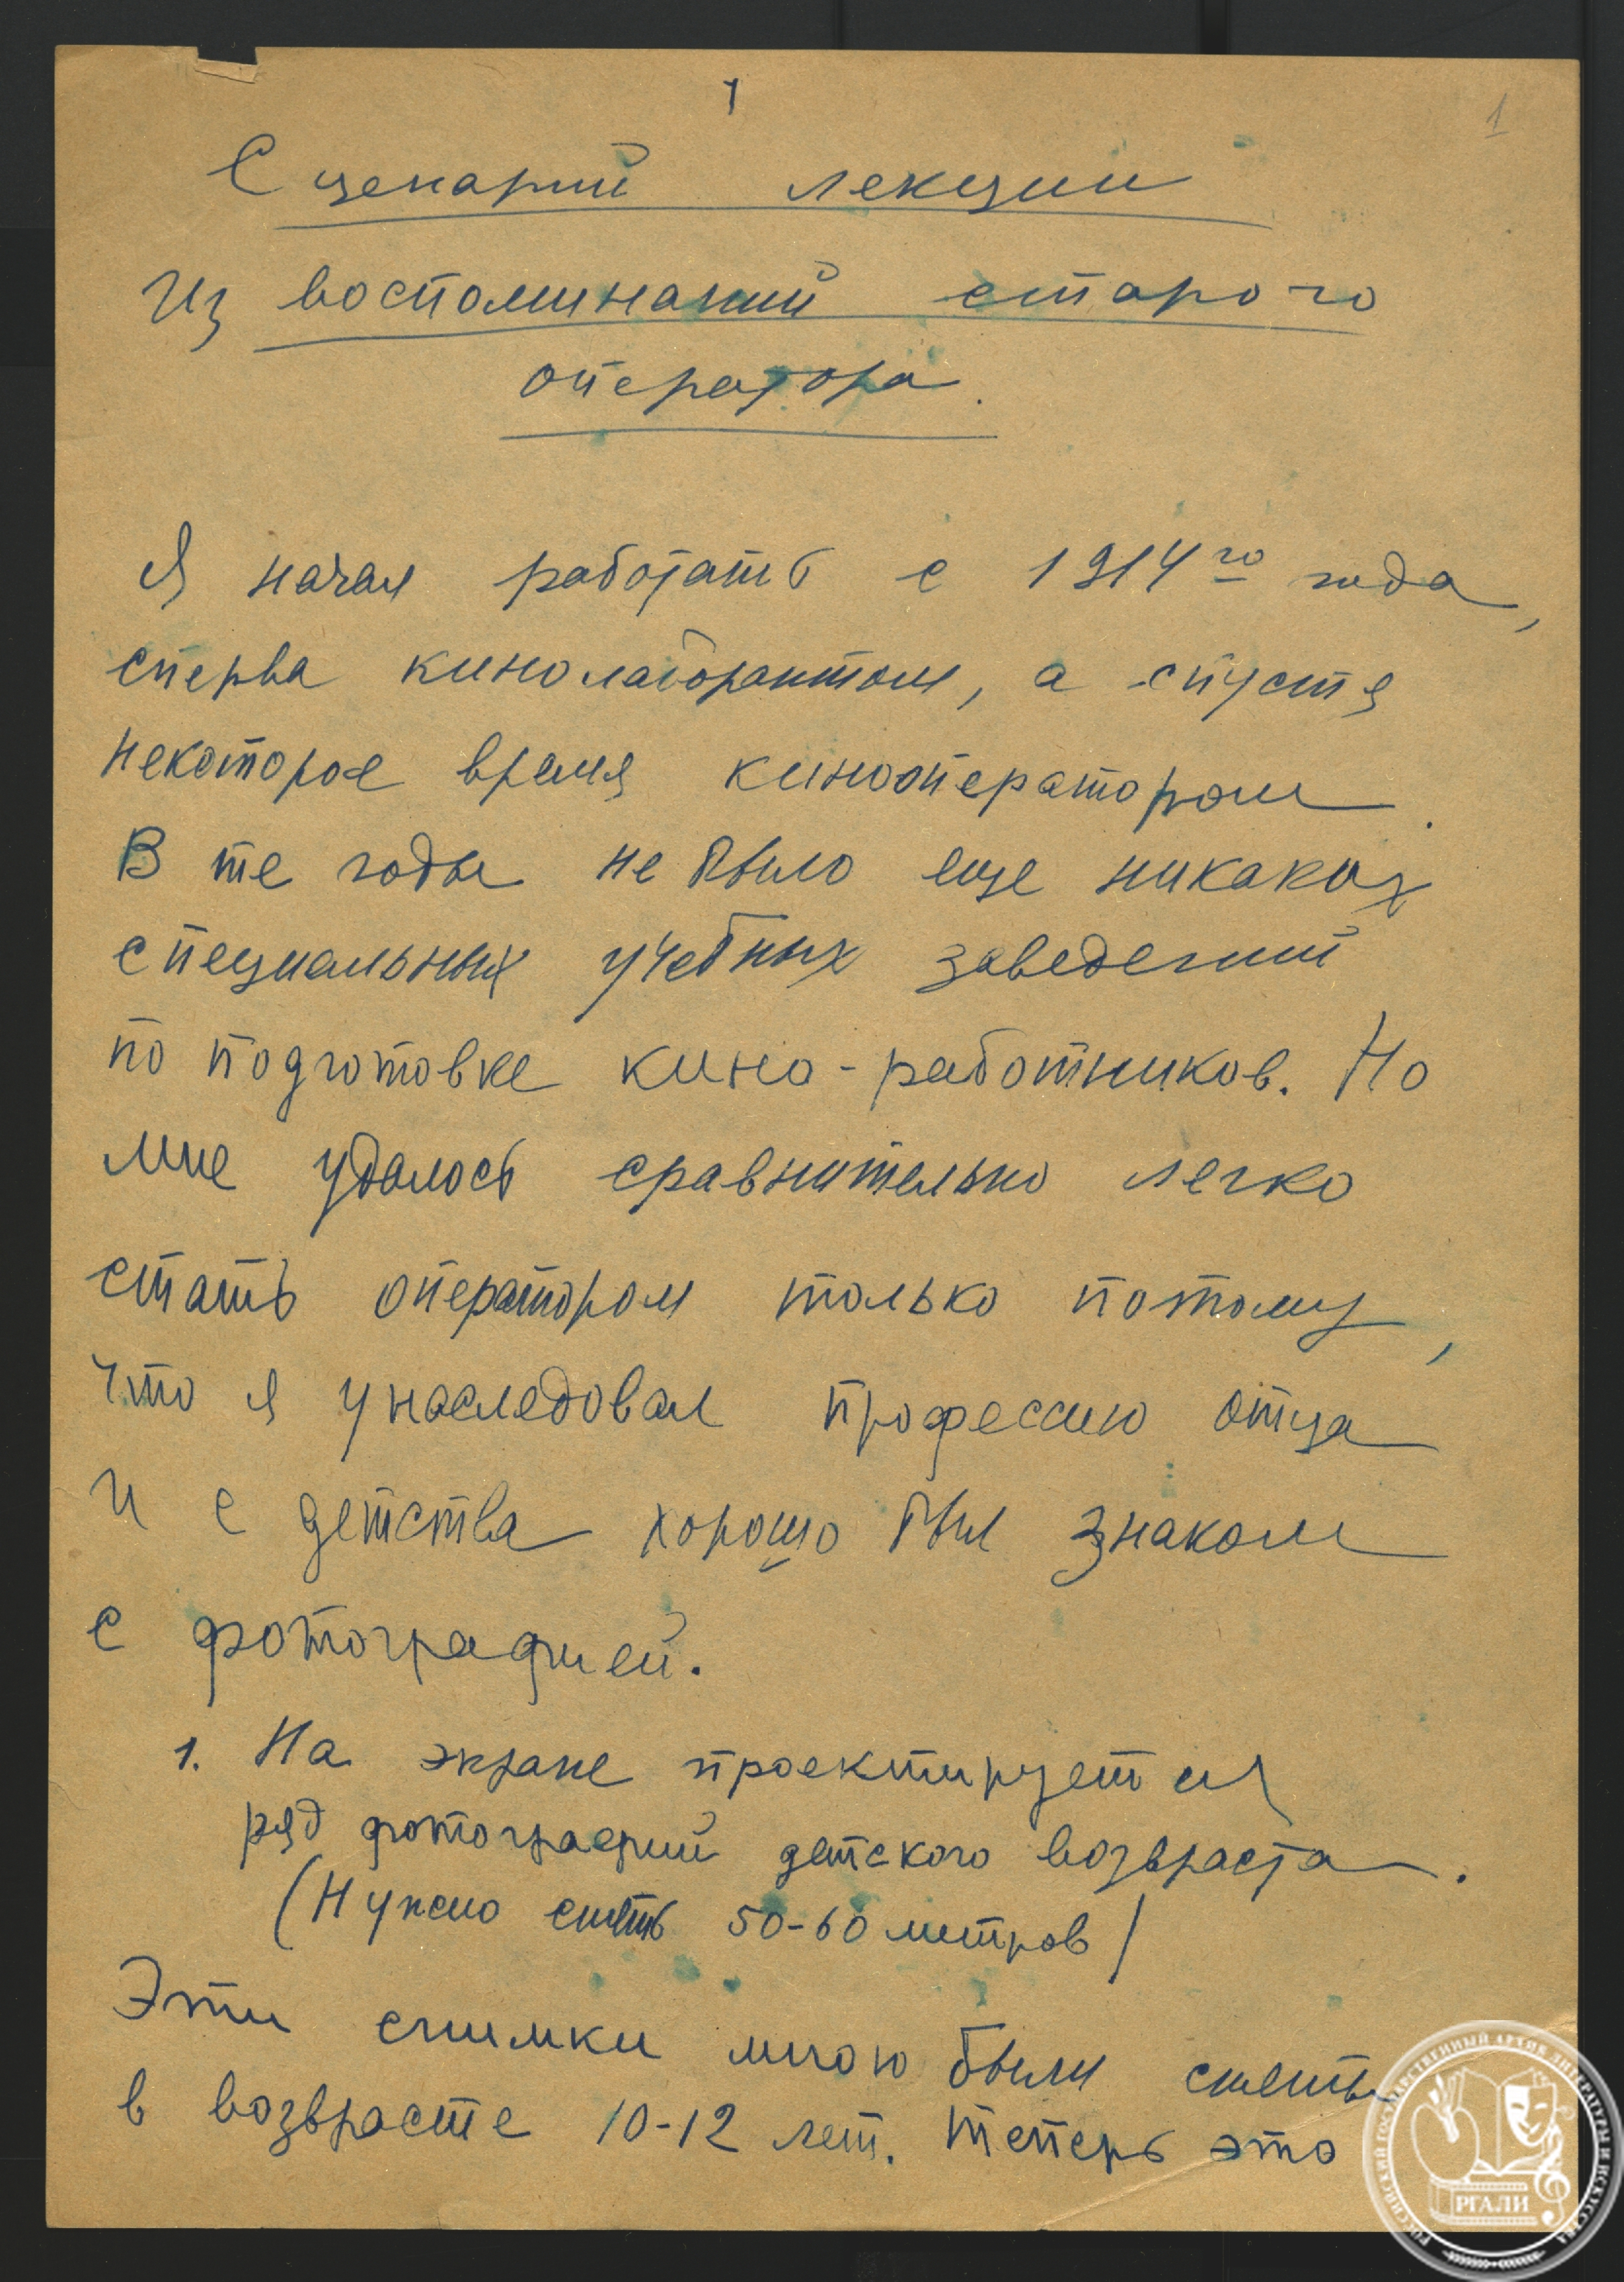 1
1
Сценарий лекции
Из воспоминаний старого
оператора.
Я начал работать с 1914го года,
сперва кинолаборантом, а спустя
некоторое время кинооператором.
В те годы не было еще никаких
специальных учебных заведений
по подготовке кино-работников. Но
мне удалось сравнительно легко
стать оператором только потому,
что я унаследовал профессию отца
и с детства хорошо был знаком
с фотографией.
1. На экране проектируется
ряд фотографий детского возвраста.
(Нужно снять 50-60 метров)
Эти снимки мною были сняты
в возврасте 10-12 лет. Теперь это
РОССИЙСКИЙ ГОСУДАРСТВЕННЫЙ АРХИВ ЛИТЕРАТУРЫ И ИСКУССТВА
РГАЛИ